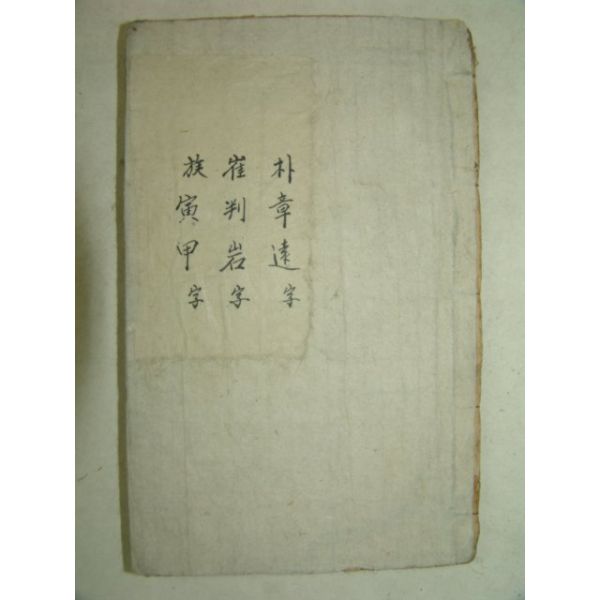 朴章遠字
崔判岩字
族寅甲字